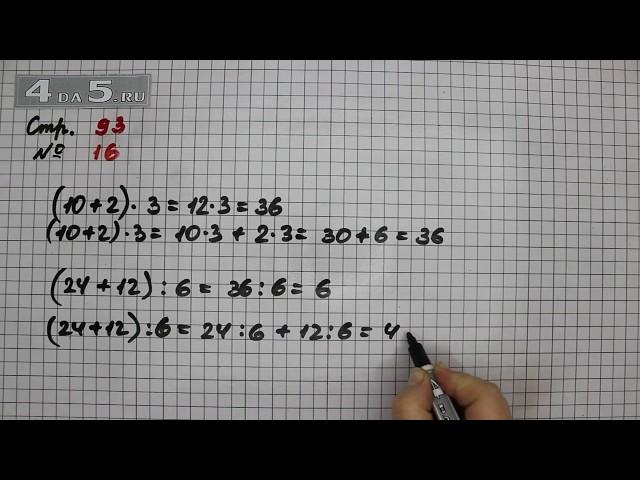 4 DA 5.RU
Стр. 93
№ 16
(10+2)·3=12·3=36
(10+2)·3=10·3+2·3=30+6=36
(24+12):6=36:6=6
(24+12):6=24:6+12:6=4